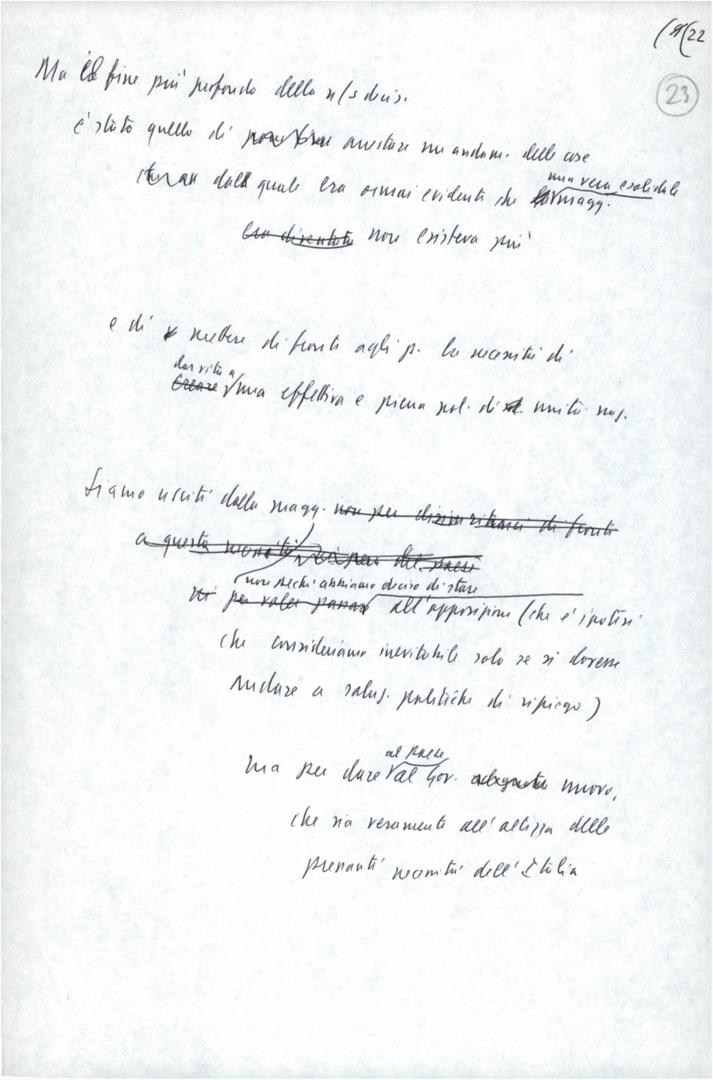 22
23
Ma il fine più profondo della n/s decis.
è stato quello di arrestare un andam. delle cose
una vera e solidale
dal quale era ormai evidente che magg.
era diventata non esisteva più
e di mettere di fronte agli p. la necessità di
dar vita a
creare una effettiva e piena pol. di unità naz.
Siamo usciti dalla magg. non per disimpegnarci di fronti
a questa necessità del paese
non perché abbiamo deciso di stare
per voler passare all'opposizione (che è ipotesi
che consideriamo inevitabile solo se si dovesse
andare a soluz. politiche di ripiego)
al paese
ma per dare al Gov. adeguato nuovo,
che sia veramente all'altezza delle
pressanti necessità dell'Italia